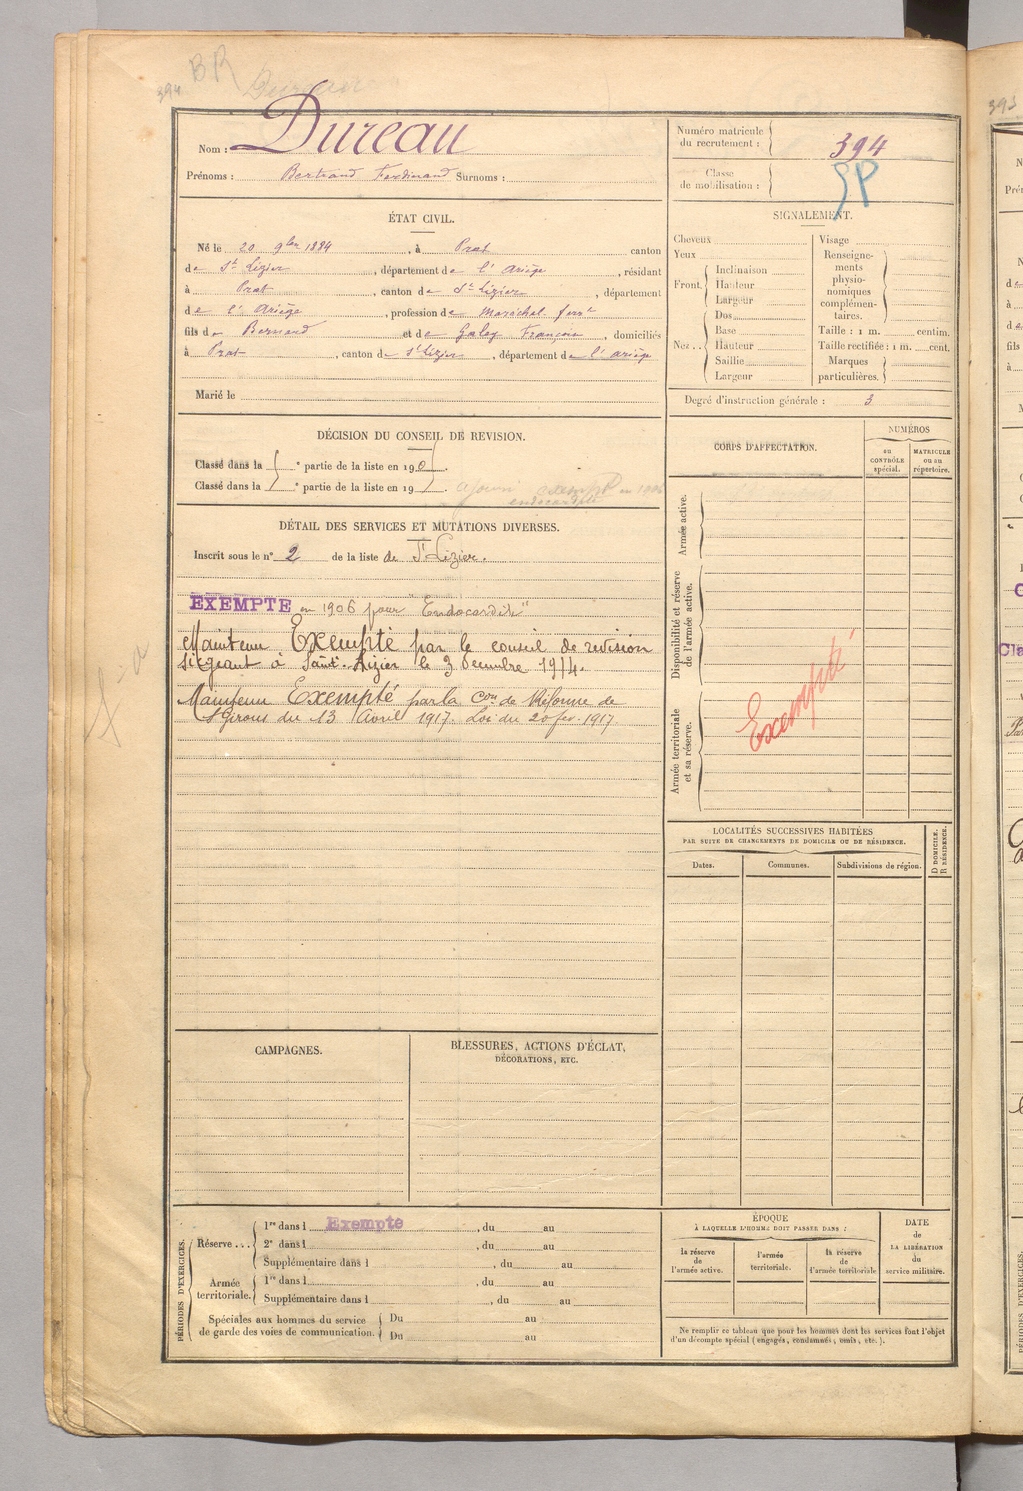 394 BR Dureau
Nom : Dureau
Prénoms : Bertrand Ferdinand Surnoms :
Numéro matricule
du recrutement : 394
Classe
de mobilisation :
SP
ÉTAT CIVIL.
Né le 20 9bre 1884, à Prat canton
de St Lizier, département de l'Ariège, résidant
à Prat, canton de St Lizier, département
de l'Ariège, profession de Maréchal ferrt
fils de Bernard et de Galey Françoise, domiciliés
à Prat, canton de St Lizier, département de l'Ariège
Marié le
SIGNALEMENT.
Cheveux
Yeux
Front.
Inclinaison
Hauteur
Largeur
Nez..
Dos
Base
Hauteur
Saillie
Largeur
Visage
Renseigne-
ments
physio-
nomiques
complémen-
taires.
Taille : 1 m. centim.
Taille rectifiée : 1 m. cent.
Marques
particulières.
Degré d'instruction générale : 3
DÉCISION DU CONSEIL DE REVISION.
Classé dans la e partie de la liste en 190
Classé dans la e partie de la liste en 19
ajourné exempté en 1906
endocardite
DÉTAIL DES SERVICES ET MUTATIONS DIVERSES.
Inscrit sous le n° 2 de la liste de St Lizier.
EXEMPTE en 1906 pour "Endocardite"
Maintenu Exempté par le conseil de revision
siégeant à Saint-Lizier le 3 Décembre 1914.
Maintenu Exempté par la Con de Réforme de
St Girons du 13 Avril 1917. Loi du 20 fév. 1917.
CORPS D'AFFECTATION.
NUMÉROS
au
CONTRÔLE
spécial.
MATRICULE
ou au
répertoire.
Armée active.
Disponibilité et réserve
de l'armée active.
Armée territoriale
et sa réserve.
Exempté
LOCALITÉS SUCCESSIVES HABITÉES
PAR SUITE DE CHANGEMENTS DE DOMICILE OU DE RÉSIDENCE.
Dates.
Communes.
Subdivisions de région.
D DOMICILE.
R RÉSIDENCE.
CAMPAGNES.
BLESSURES, ACTIONS D'ÉCLAT,
DÉCORATIONS, ETC.
PÉRIODES D'EXERCICES.
Réserve...
1re dans l Exempte, du au
2e dans l , du au
Supplémentaire dans l , du au
Armée
territoriale.
1re dans l , du au
Supplémentaire dans l , du au
Spéciales aux hommes du service
de garde des voies de communication.
Du au
Du au
ÉPOQUE
À LAQUELLE L'HOMME DOIT PASSER DANS :
la réserve
de
l'armée active.
l'armée
territoriale.
la réserve
de
l'armée territoriale
DATE
de
LA LIBÉRATION
du
service militaire.
Ne remplir ce tableau que pour les hommes dont les services font l'objet
d'un décompte spécial (engagés, condamnés, omis, etc.).